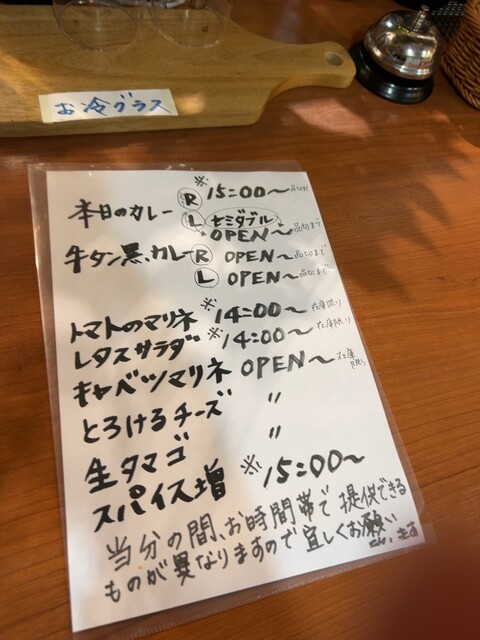 お冷グラス
本日のカレー Ⓡ ※15:00〜 品切まで
Ⓛ セミダブル
OPEN〜 品切まで
牛タン黒カレー Ⓡ OPEN〜 品切まで
Ⓛ OPEN〜 品切まで
トマトのマリネ ※14:00〜 在庫限り
レタスサラダ ※14:00〜 在庫限り
キャベツマリネ OPEN〜 在庫限り
とろけるチーズ 〃
生タマゴ 〃
スパイス増 ※15:00〜
当分の間、お時間帯で提供できる
ものが異なりますので宜しくお願い
致します